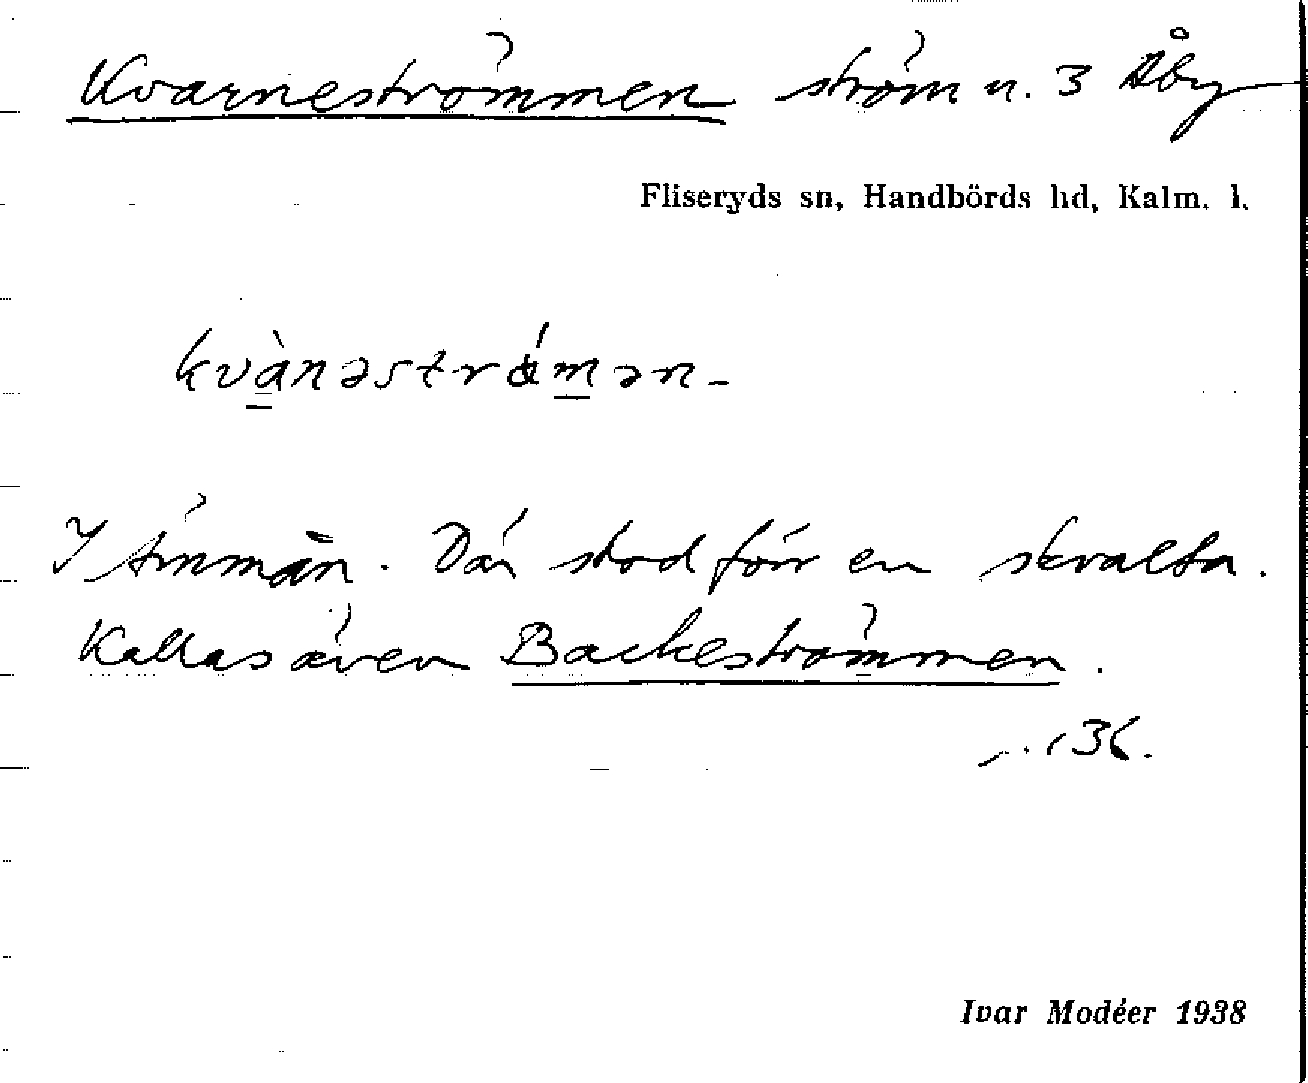 Kvarneströmmen ström n. 3 Åby
Fliseryds sn, Handbörds hd, Kalm. l.
kvànəstrǿmən
I Emmån. Där stod förr en skvalta.
Kallas även Backeströmmen.
136.
Ivar Modéer 1938